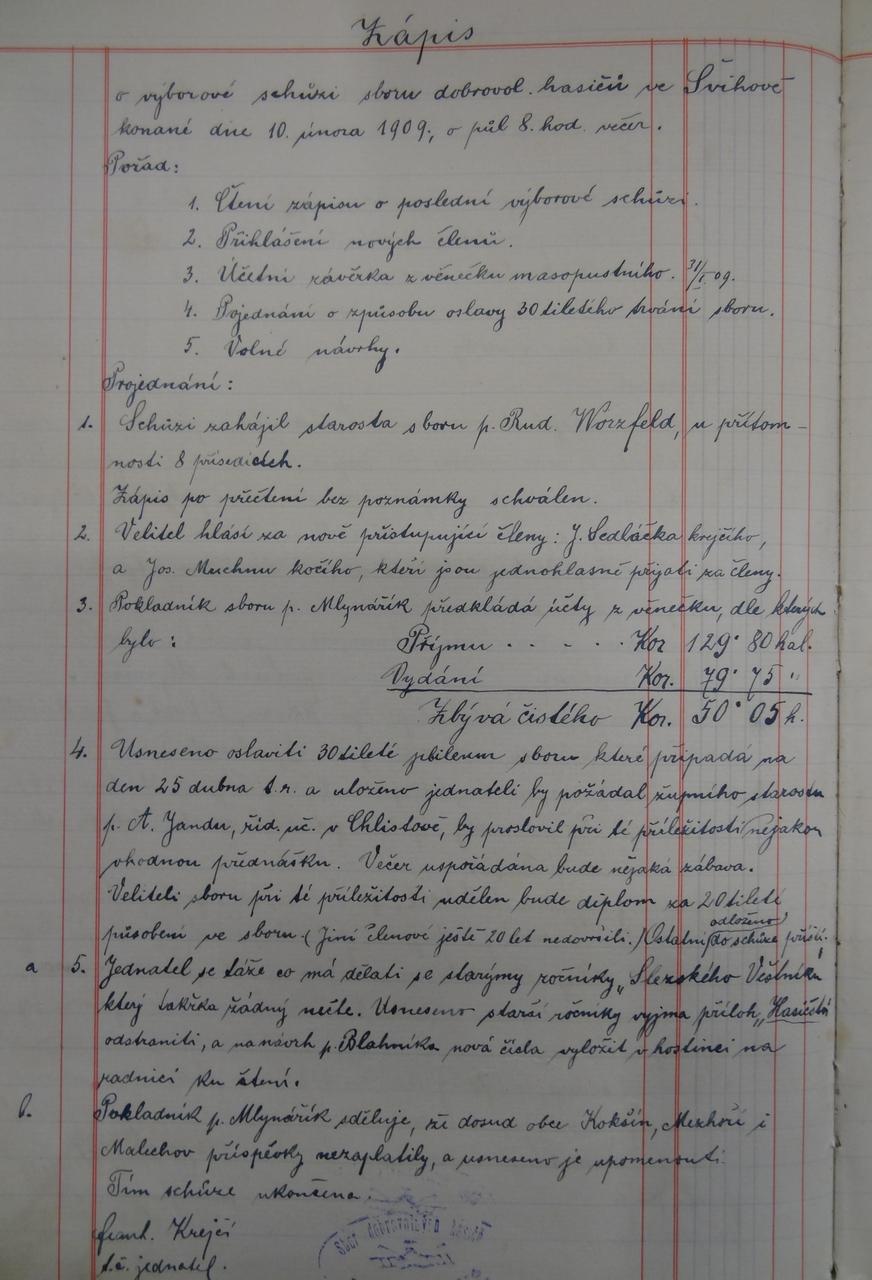 Zápis
o výborové schůzi sboru dobrovol. hasičů ve Švihově
konané dne 10. února 1909., o půl 8. hod. večer.
Pořad:
1. Čtení zápisu o poslední výborové schůzi.
2. Přihlášení nových členů.
3. Účetní závěrka z věnečku masopustního. 31/I. 09.
4. Pojednání o způsobu oslavy 30tiletého trvání sboru.
5. Volné návrhy.
Projednání:
1. Schůzi zahájil starosta sboru p. Rud. Worzfeld, u přítom-
nosti 8 přísedících.
Zápis po přečtení bez poznámky schválen.
2. Velitel hlásí za nově přistupující členy: J. Sedláčka krejčího,
a Jos. Muchnu kočího, kteří jsou jednohlasně přijati za členy.
3. Pokladník sboru p. Mlynářík předkládá účty z věnečku, dle kterých
bylo: Příjmu . . - . . Kor 129· 80 hal.
Vydání Kor. 79· 75 "
Zbývá čistého Kor. 50· 05 h.
4. Usneseno oslaviti 30tileté jubileum sboru které připadá na
den 25 dubna t.r. a uloženo jednateli by požádal župního starostu
p. A. Jandu, říd. uč. v Chlistově, by proslovil při té příležitosti nějakou
vhodnou přednášku. Večer uspořádána bude nějaká zábava.
Veliteli sboru při té příležitosti udělen bude diplom za 20tileté
působení ve sboru. (Jiní členové ještě 20 let nedovršili.) (Ostatní odloženo do schůze příští.
a 5. Jednatel se táže co má dělati se starýmy ročníky „Slezského Věstníku
který takřka žádný nečte. Usneseno starší ročníky vyjma příloh „Hasičstvo
odstraniti, a na návrh p. Blahníka nová čísla vyložit v hostinci na
radnici ku čtení.
b. Pokladník p. Mlynářík sděluje, že dosud obce Kokšín, Mezhoří i
Malechov příspěvky nezaplatily, a usneseno je upomenouti.
Tím schůze ukončena.
Frant. Krejčí
t.č. jednatel.
Sbor dobrovolných hasičů